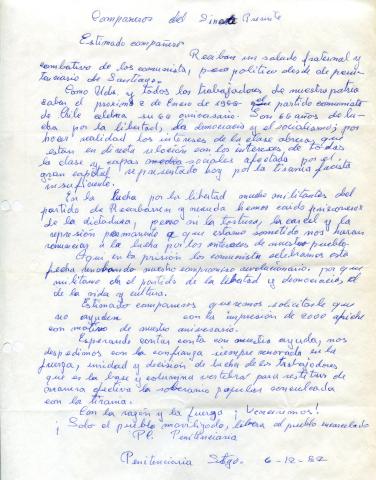 Compañeros del Sindicato Presente
Estimado compañeros
Reciban un saludo fraternal y
combativo de los comunista, preso político desde de peni-
tenciario de Santiago.
Como Uds. y todos los trabajadores de nuestra patria
saben el proximo 2 de Enero de 19 el partido comunista
de Chile celebra su 60 anivesario. Son 60 años de lu-
cha por la libertad, la democracia y el socialismo; por
hacer realidad los intereses de la clase obrera, que
estan en directa relación con los intereses de todas
la clase y capas sociales afectada por el
gran capital representado hoy por la tirania facista
En la lucha por la libertad mucho militantes del
partido de Recabarren y neruda hemos caido prisioneros
de la dictadura, pero ni la tortura, la carcel y la
represión permanente a que estamo sometido nos haran
renunciar a la lucha por los intereses de nuestro pueblo.
Aqui, en ta prisión los comunista celebramos esta
fecha renobando nuestro compromiso revolucionario. por que
militamo en el partido de la libertad y democracia, el
de la vida y cultura.
Estimado compañeros queremos solicitarle que
no ayuden con la impresión de 2000 afiche
con motivo de nuestro aniversario.
Esperando contar con nuestra ayuda, nos
despedimos con la confianza siempre renovada en la
fuerza, unidad y decisión de lucha de los trabajadores
que es la base y columna vertebral para restituir de
manera efectiva la soberania popular conculcada
con la tirania.
Con la razón y la fuerza ¡ Venceremos!
¡ Solo el pueblo movilizado, libera al pueblo encarcelado
PP. Penitenciaria
Penitenciaria Stgo. 6-12-82